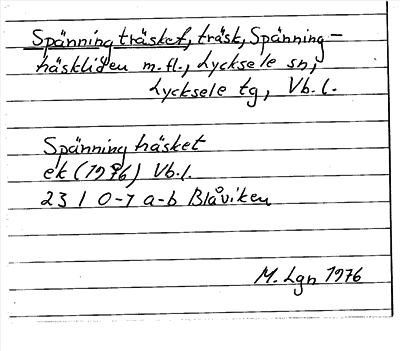 Spänningträsket, träsk, Spänning-
träskliden m.fl., Lycksele sn,
Lycksele tg, Vb.l.
Spänningträsket
ek (1976) Vb.l.
23 I 0-1 a-b Blåviken
M. Lgn 1976